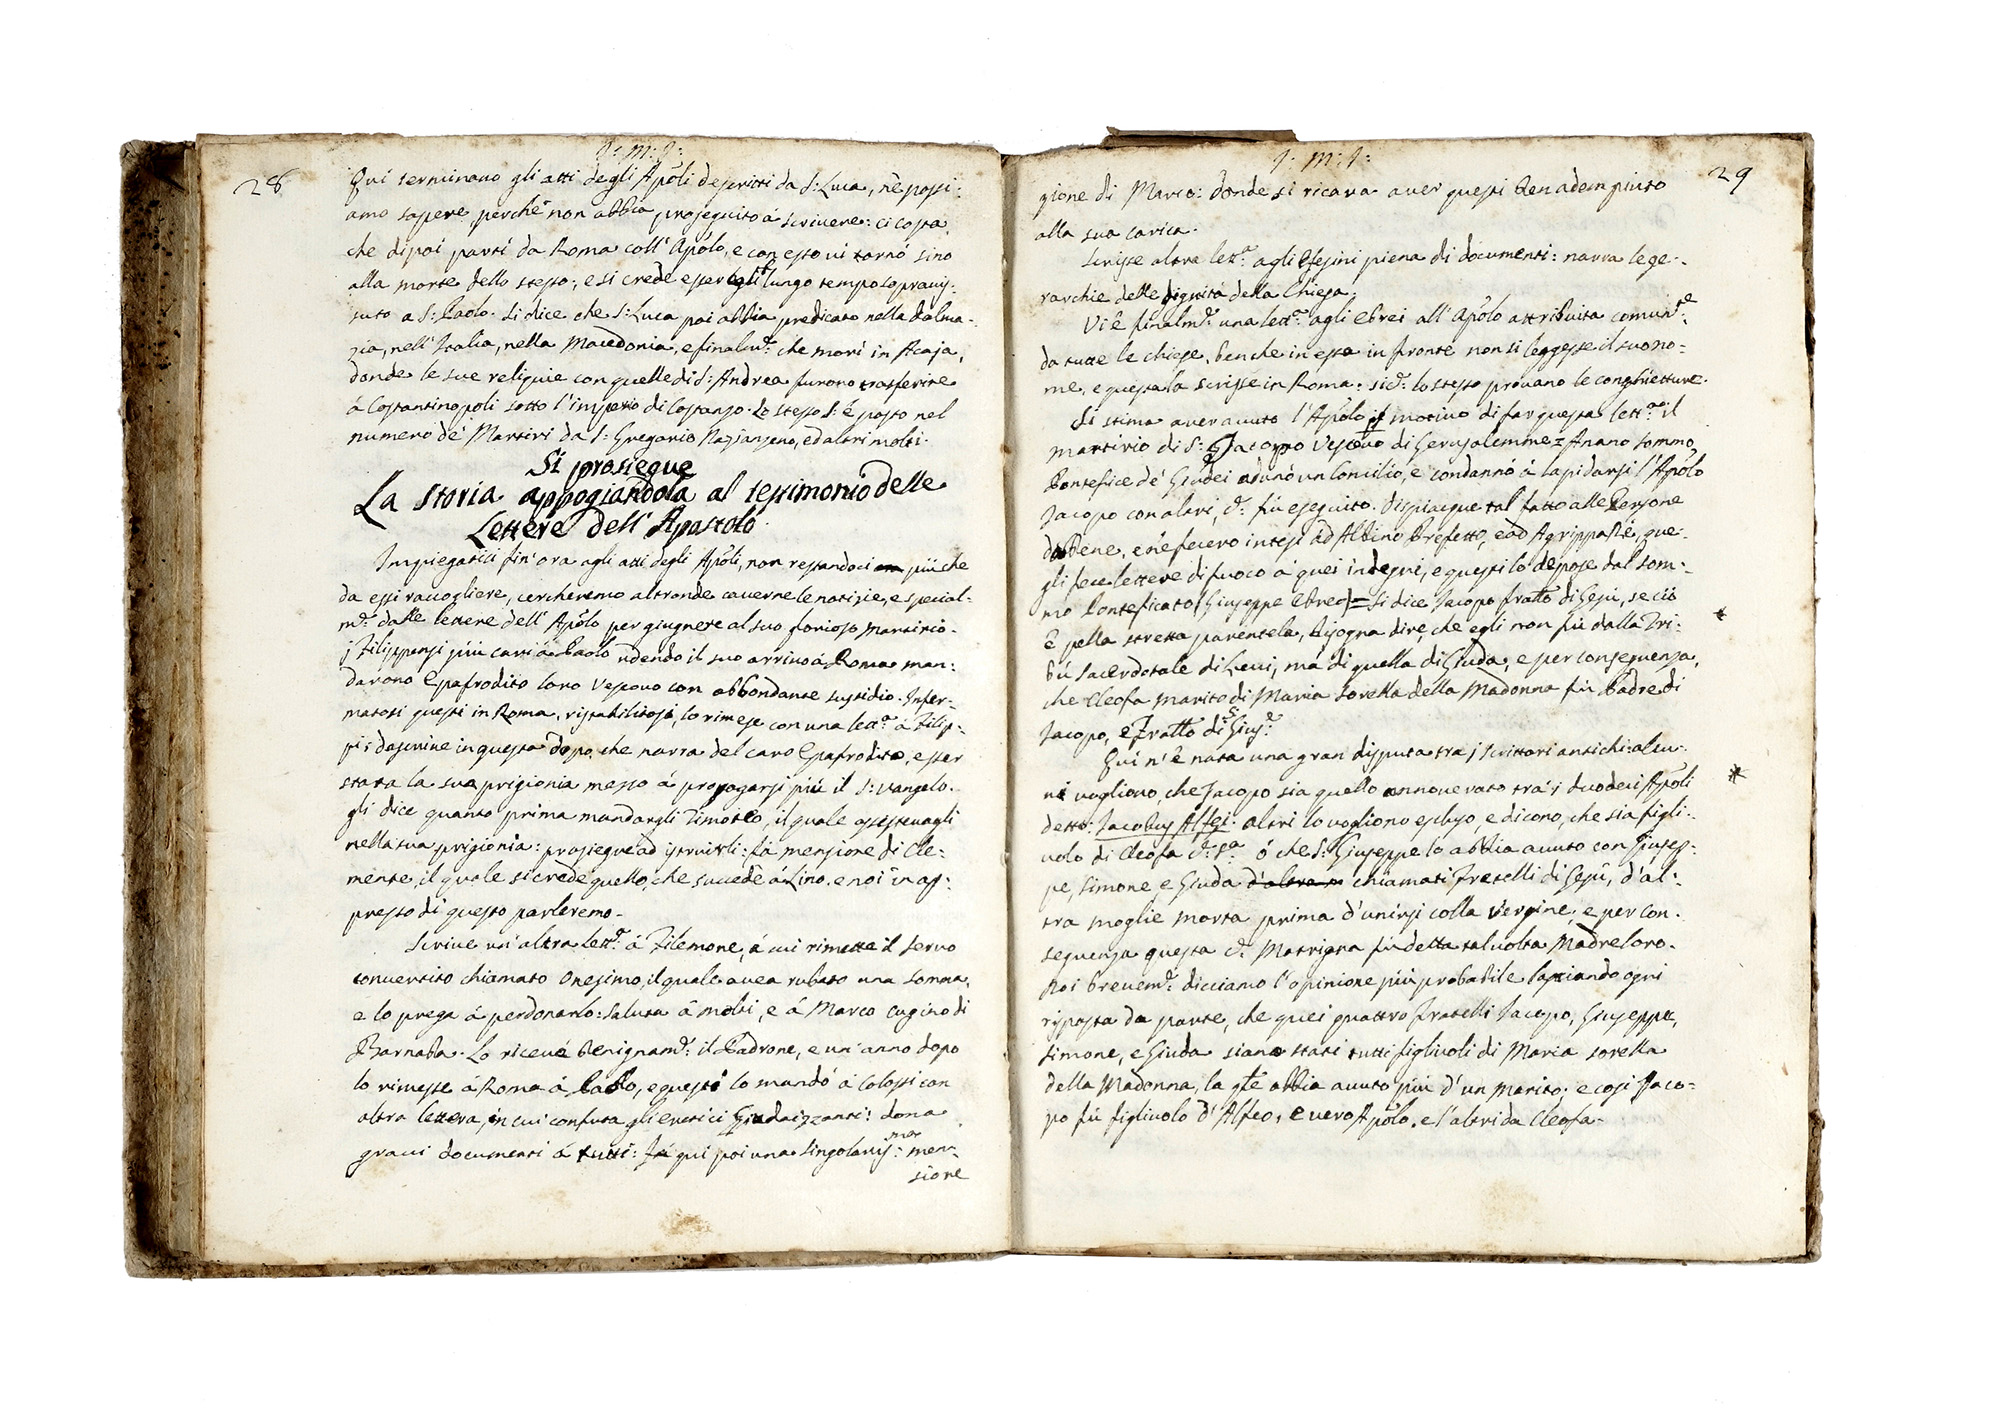 28
J: M: J:
Qui terminano gli atti degli Apõli descritti da S: Luca, nè possi:
amo sapere, perchè non abbia proseguito á scrivere: ci costa,
che dipoi partì da Roma coll' Apõlo, e con esso vi tornó sino
alla morte dello stesso; e si crede esser egli lungo tempo sopravis:
suto a S: Paolo. Si dice che S: Luca poi abbia predicato nella Dalma-
zia, nell' Italia, nella Macedonia, e finalmᵉ: che morì in Acaja,
donde le sue reliquie con quelle di S: Andrea furono trasferite
á Costantinopoli sotto l'impero di Costanzo. Lo stesso S: é posto nel
numero de' Martiri da S: Gregorio Nazianzeno, ed altri molti.
Si prosiegue
La storia appogiandola al testimonio delle
Lettere dell' Apostolo.
Impiegatici fin' ora agli atti degli Apõli, non restandoci più che
da essi raccogliere, cercheremo altronde caverne le notizie, e special-
mᵉ: dalle lettere dell' Apõlo per giugnere al suo glorioso martirio.
j Filippensi più cari á Paolo udendo il suo arrivo á Roma man:
darono Epafrodito loro Vescovo con abbondante sussidio. Infer-
matosi questi in Roma, ristabilitosi, lo rimese con una letᵃ: á Filip-
pi; descrive in questa dopo, che narra del caro Epafrodito, esser
stata la sua prigionia messo á propagarsi più il S: Vangelo.
gli dice quanto prima mandargli Timoteo, il quale assistevagli
nella sua prigionia: prosiegue ad istruirli: fà menzione di Cle:
mente, il quale si crede quello, che succedè á Lino, e noi in ap:
presso di questo parleremo.
Scrive un' altra letᵃ: á Filemone, á cui rimette il servo
convertito chiamato Onesimo, il quale avea rubato una somma,
e lo prega á perdonarlo: saluta á molti, e á Marco cugino di
Barnaba. Lo ricevè benignamᵉ: il Padrone, e un' anno dopo
lo rimesse á Roma á Paolo, e questi lo mandó á Colossi con
altra lettera, in cui confuta gli eretici Giudaizzanti: dona
gravi documenti á tutti: Fà qui poi una singolarisᵐᵃ: men-
sione
29
J: M: J:
zione di Marco: donde si ricava aver questi ben adempiuto
alla sua carica.
Scrisse altra letᵃ: agli Efesini piena di documenti: narra le ge-
rarchie delle dignità della Chiesa.
Vi è finalmᵉ: una lettᵃ: agli Ebrei all' Apõlo attribuita comunᵗᵉ:
da tutte le chiese, benche in essa in fronte non si leggesse il suo no-
me, e questa la scrisse in Roma. sicᵉ: lo stesso provano le conghietture.
Si stima aver avuto l'Apõlo p motivo di far questa lettᵃ: il
martirio di S: Jacopo Vescovo di Gerusalemme: Anano sommo
Pontefice de' Giudei adunó un Concilio, e condannó á lapidarsi l'Apõlo
Jacopo con altri, cᵉ: fù eseguito. Dispiacque tal fatto alle Persone
dabbene, e ne fecero intesi ad Albino Prefetto, ed Agrippa Ré, que-
gli fece lettere di fuoco á quei indegni, e questi lo depose dal som-
mo Ponteficato (Giuseppe Ebreo) = Si dice Jacopo fratto di Gesù, se ciò
è pella stretta parentela, bisogna dire, che egli non fù dalla Tri:
*
bù sacerdotale di Levi, má di quella di Giuda, e per conseguenza,
che Cleofa marito di Maria sorella della Madonna fù Padre di
Jacopo, e Fratto di S: Giusᵉ:
Qui n'è nata una gran disputa tra j scrittori antichi: alcu-
*
ni vogliono, che Jacopo sia quello annoverato trá i duodeci Apõli
detto: Jacobus Alfei. altri lo vogliono escluso, e dicono, che sia figli-
uolo di Cleofa ó che S: Giuseppe lo abbia avuto con Giusep-
pe, Simone e Giuda d'altra m chiamati Fratelli di Gesù, d'al:
tra moglie morta prima d'unirsi colla Vergine; e per con-
seguenza questa cᵉ: Matrigna fù detta talvolta Madre loro.
Noi brevemᵉ: dicciamo l'opinione più probabile lasciando ogni
risposta da parte, che quei quattro Fratelli Jacopo, Giuseppe,
Simone, e Giuda siano stati tutti figliuoli di Maria sorella
della Madonna, la qle abbia avuto più d'un marito; e così Jaco-
po fù figliuolo d'Alfeo, e vero Apõlo, e l'altri da Cleofa.